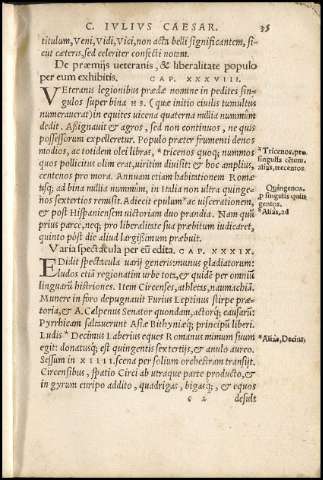 C. IVLIVS CAESAR. 35
titulum, Veni, Vidi, Vici, non acta belli significantem, si-
cut cæteris, sed celeriter confecti notam.
De præmijs ueteranis, & liberalitate populo
per eum exhibitis. CAP. XXXVIII.
VEteranis legionibus prædæ nomine in pedites sin-
gulos super bina HS. (quæ initio ciuilis tumultus
numerauerat) in equites uicena quaterna millia nummûm
dedit. Aßignauit & agros, sed non continuos, ne quis
possessorum expelleretur. Populo præter frumenti denos
modios, ac totidem olei libras, * tricenos quoq; nummos
quos pollicitus olim erat, uiritim diuisit: & hoc amplius,
centenos pro mora. Annuam etiam habitationem Romæ
usq; ad bina millia nummûm, in Italia non ultra quinge-
nos sextertios remisit. Adiecit epulum * ac uiscerationem,
& post Hispaniensem uictoriam duo prandia. Nam quũ
prius parce, neq; pro liberalitate sua præbitum iudicaret,
quinto pòst die aliud largißimum præbuit.
* Tricenos, pro
singulis cẽtum,
aliâs, trecentos
Quingenos,
p singulis quin
gentos.
* Aliâs, ad
Varia spectacula per eũ edita. CAP. XXXIX.
EDidit spectacula uarij generis: munus gladiatorum:
ludos etiã regionatim urbe tota, & quidẽ per omniũ
linguarũ histriones. Item Circenses, athletas, naumachiã.
Munere in foro depugnauit Furius Leptinus stirpe præ-
toria, & A. Calpenus Senator quondam, actorq; causarũ:
Pyrrhicam saltauerunt Asiæ Bithyniæq; principũ liberi.
Ludis * Decimus Laberius eques Romanus mimum suum
egit: donatusq; est quingentis sextertijs, & anulo aureo.
Sessum in XIIII. scena per solium orchestram transijt.
Circensibus, spatio Circi ab utraque parte producto, &
in gyrum euripo addito, quadrigas, bigasq;, & equos
* Aliâs, Decius,
e 2 desult